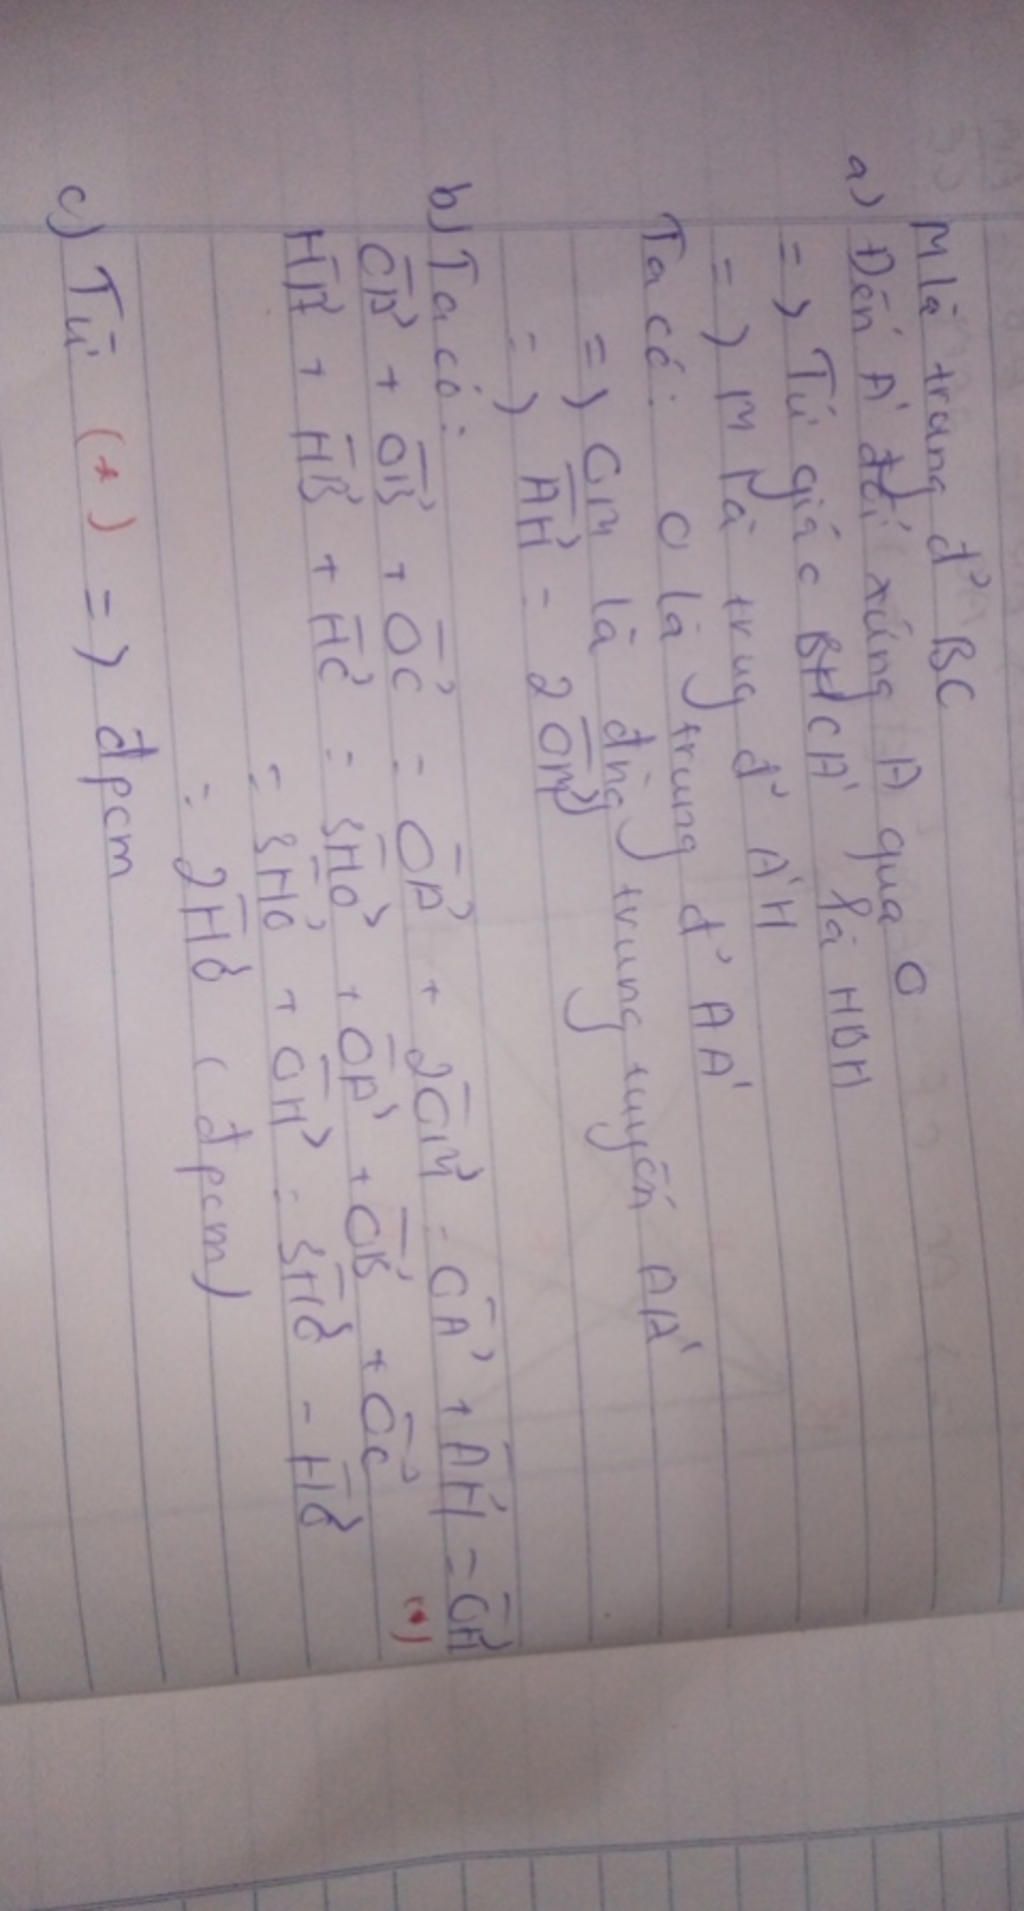 M là trung đ' BC
a) Đến A' đối xứng A qua O
=) Tứ giác BHCA' là HBH
=) M là trug đ' A'H
Ta có: O là trung đ' AA'
=) OM là đng trung tuyến AA'
=) AH⃗ = 2OM⃗
b) Ta có:
OA⃗ + OB⃗ + OC⃗ = OA⃗ + 2OM⃗ = OA⃗ + AH⃗ = OH⃗
(*)
HA⃗ + HB⃗ + HC⃗ = 3HO⃗ + OA⃗ + OB⃗ + OC⃗
= 3HO⃗ + OH⃗ = 3HO⃗ - HO⃗
= 2HO⃗ (đpcm)
c) Từ (*) =) đpcm